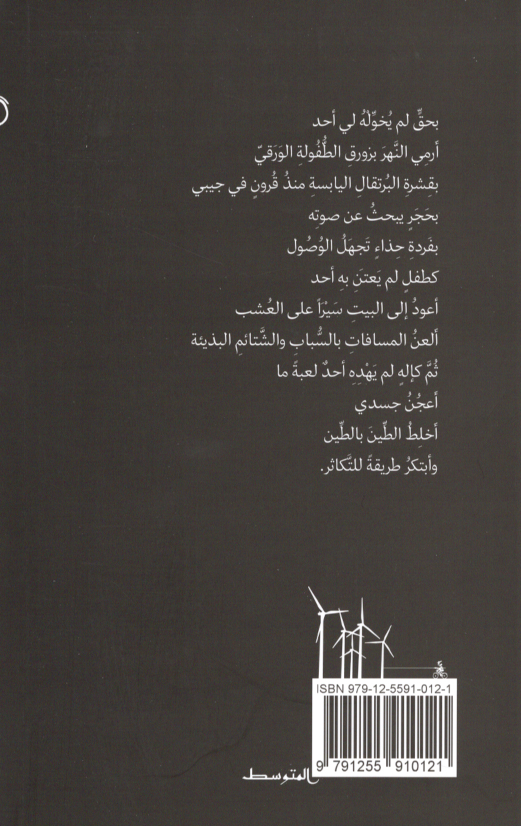 بحقٍّ لم يُخوِّلْهُ لي أحد
أرمِي النَّهرَ بزورقِ الطُّفولةِ الوَرَقيّ
بقِشرةِ البُرتقالِ اليابسةِ منذُ قُرونٍ في جيبي
بحَجَرٍ يبحثُ عن صوتِه
بفَردةِ حِذاءٍ تَجهَلُ الوُصُول
كطفلٍ لم يَعتنَ بهِ أحد
أعودُ إلى البيتِ سَيْرَاً على العُشب
ألعنُ المسافاتِ بالسُّبابِ والشَّتائمِ البذيئة
ثُمَّ كإلهٍ لم يَهْدِهِ أحدٌ لعبةً ما
أعجُنُ جسدي
أخلِطُ الطّينَ بالطّين
وأبتكرُ طريقةً للتَّكاثر.
ISBN 979-12-5591-012-1
9 791255 910121
المتوسط